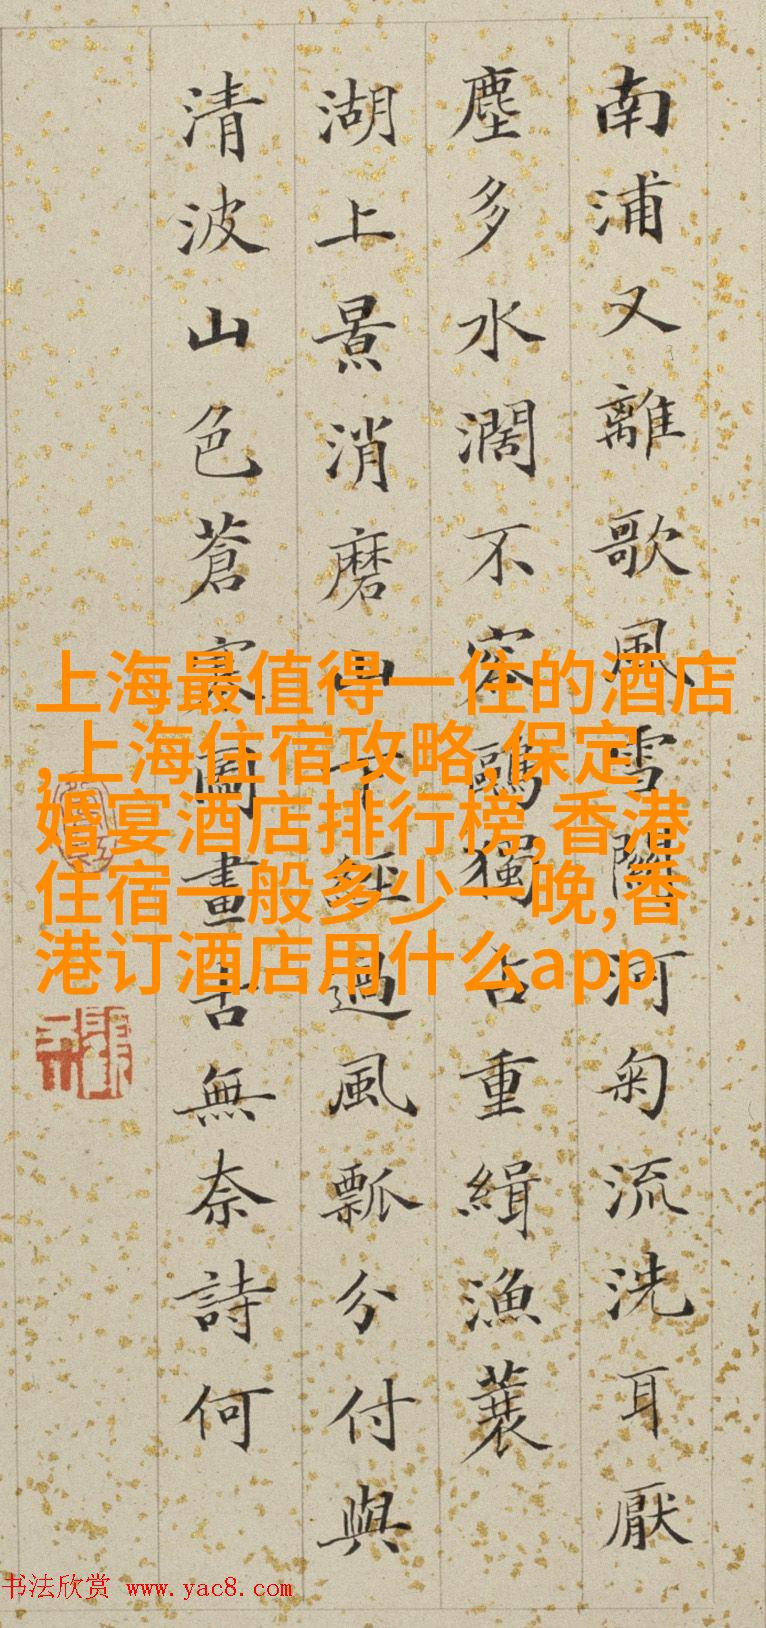 南浦又離歌風雪關河匊流洗耳厭
塵多水濶不容鷗獨占重緝漁蓑
湖上景消磨山下經過風瓢分付與
清波山色蒼寒畫無奈詩何
上海最值得一住的酒店
,上海住宿攻略,保定
婚宴酒店排行榜,香港
住宿一般多少一晚,香
港订酒店用什么app
书法欣赏 www.yac8.com